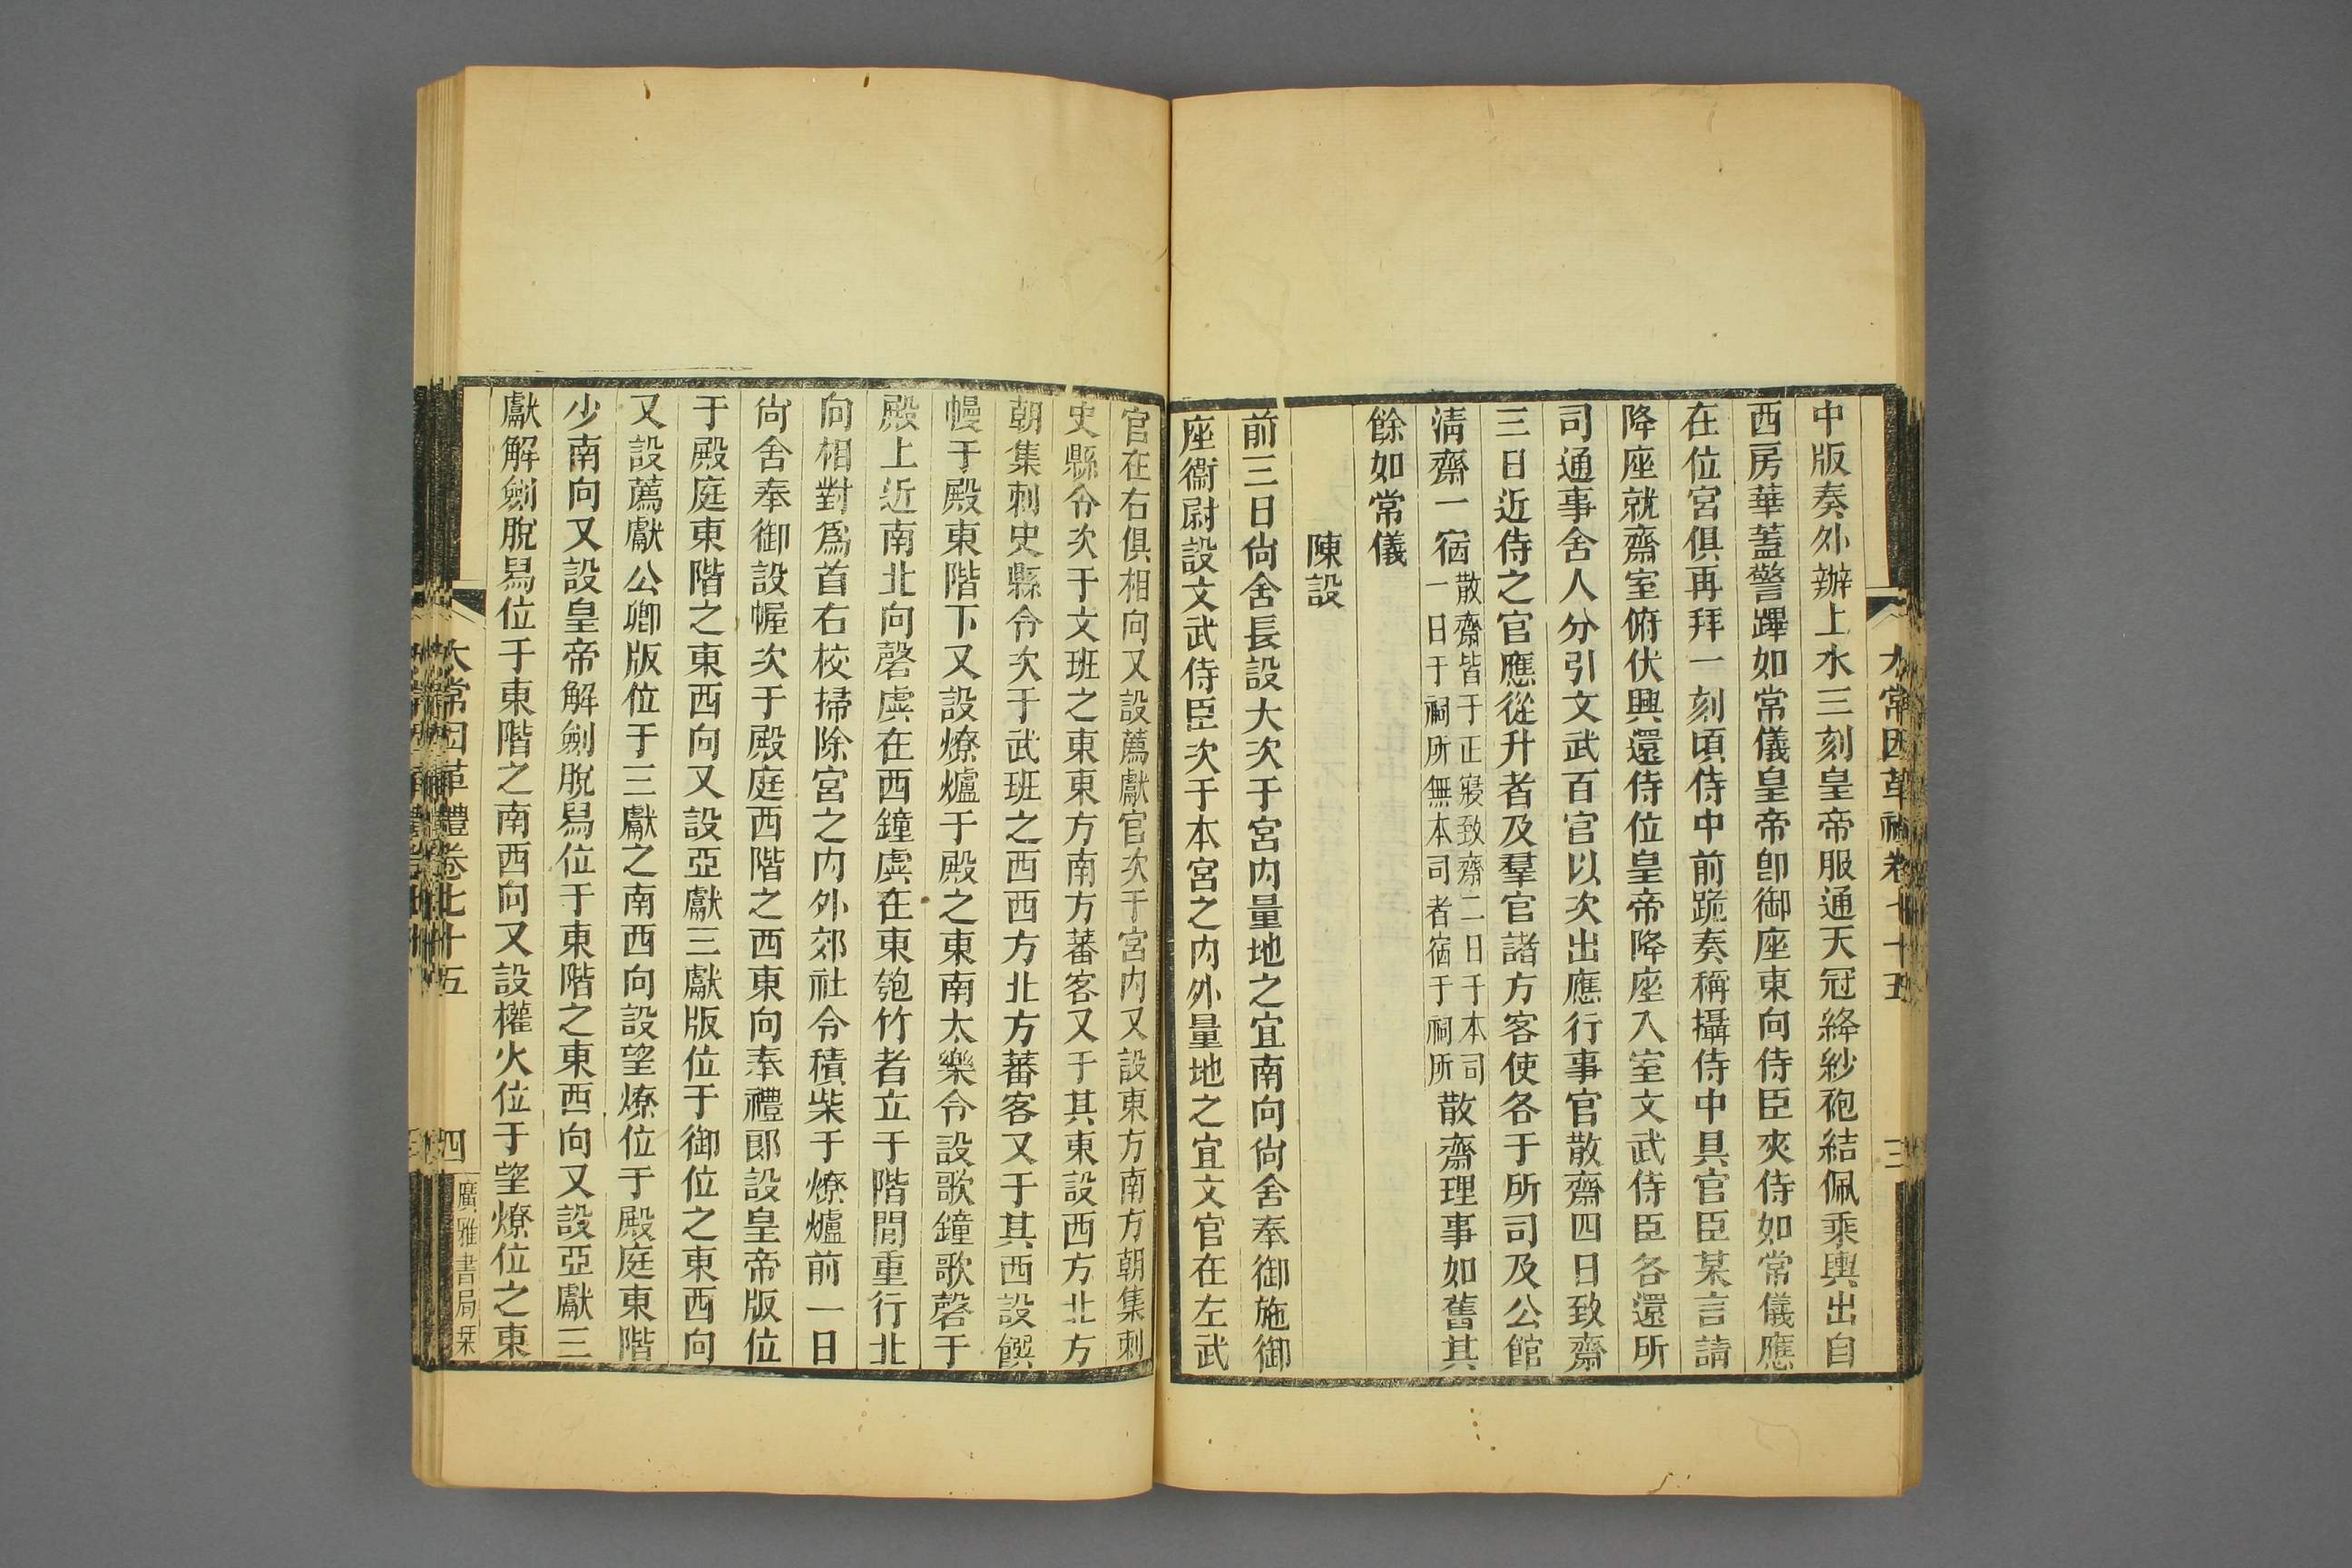 中版奏外辦上水三刻皇帝服通天冠絳紗袍結佩乘輿出自
西房華蓋警蹕如常儀皇帝卽御座東向侍臣夾侍如常儀應
在位宮俱再拜一刻頃侍中前跪奏稱攝侍中具官臣某言請
降座就齋室俯伏興還侍位皇帝降座入室文武侍臣各還所
司通事舍人分引文武百官以次出應行事官散齋四日致齋
三日近侍之官應從升者及羣官諸方客使各于所司及公館
淸齋一宿散齋皆于正寢致齋二日于本司一日于祠所無本司者宿于祠所散齋理事如舊其
餘如常儀
陳設
前三日尙舍長設大次于宮內量地之宜南向尙舍奉御施御
座衞尉設文武侍臣次于本宮之內外量地之宜文官在左武
官在右俱相向又設薦獻官次于宮內又設東方南方朝集刺
史縣令次于文班之東東方南方蕃客又于其東設西方北方
朝集刺史縣令次于武班之西西方北方蕃客又于其西設饌
幔于殿東階下又設燎爐于殿之東南太樂令設歌鐘歌磬于
殿上近南北向磬虡在西鐘虡在東匏竹者立于階閒重行北
向相對爲首右校掃除宮之內外郊社令積柴于燎爐前一日
尙舍奉御設幄次于殿庭西階之西東向奉禮郎設皇帝版位
于殿庭東階之東西向又設亞獻三獻版位于御位之東西向
又設薦獻公卿版位于三獻之南西向設望燎位于殿庭東階
少南向又設皇帝解劍脫舄位于東階之東西向又設亞獻三
獻解劍脫舄位于東階之南西向又設權火位于望燎位之東
太常因革禮卷七十五
四
廣雅書局栞